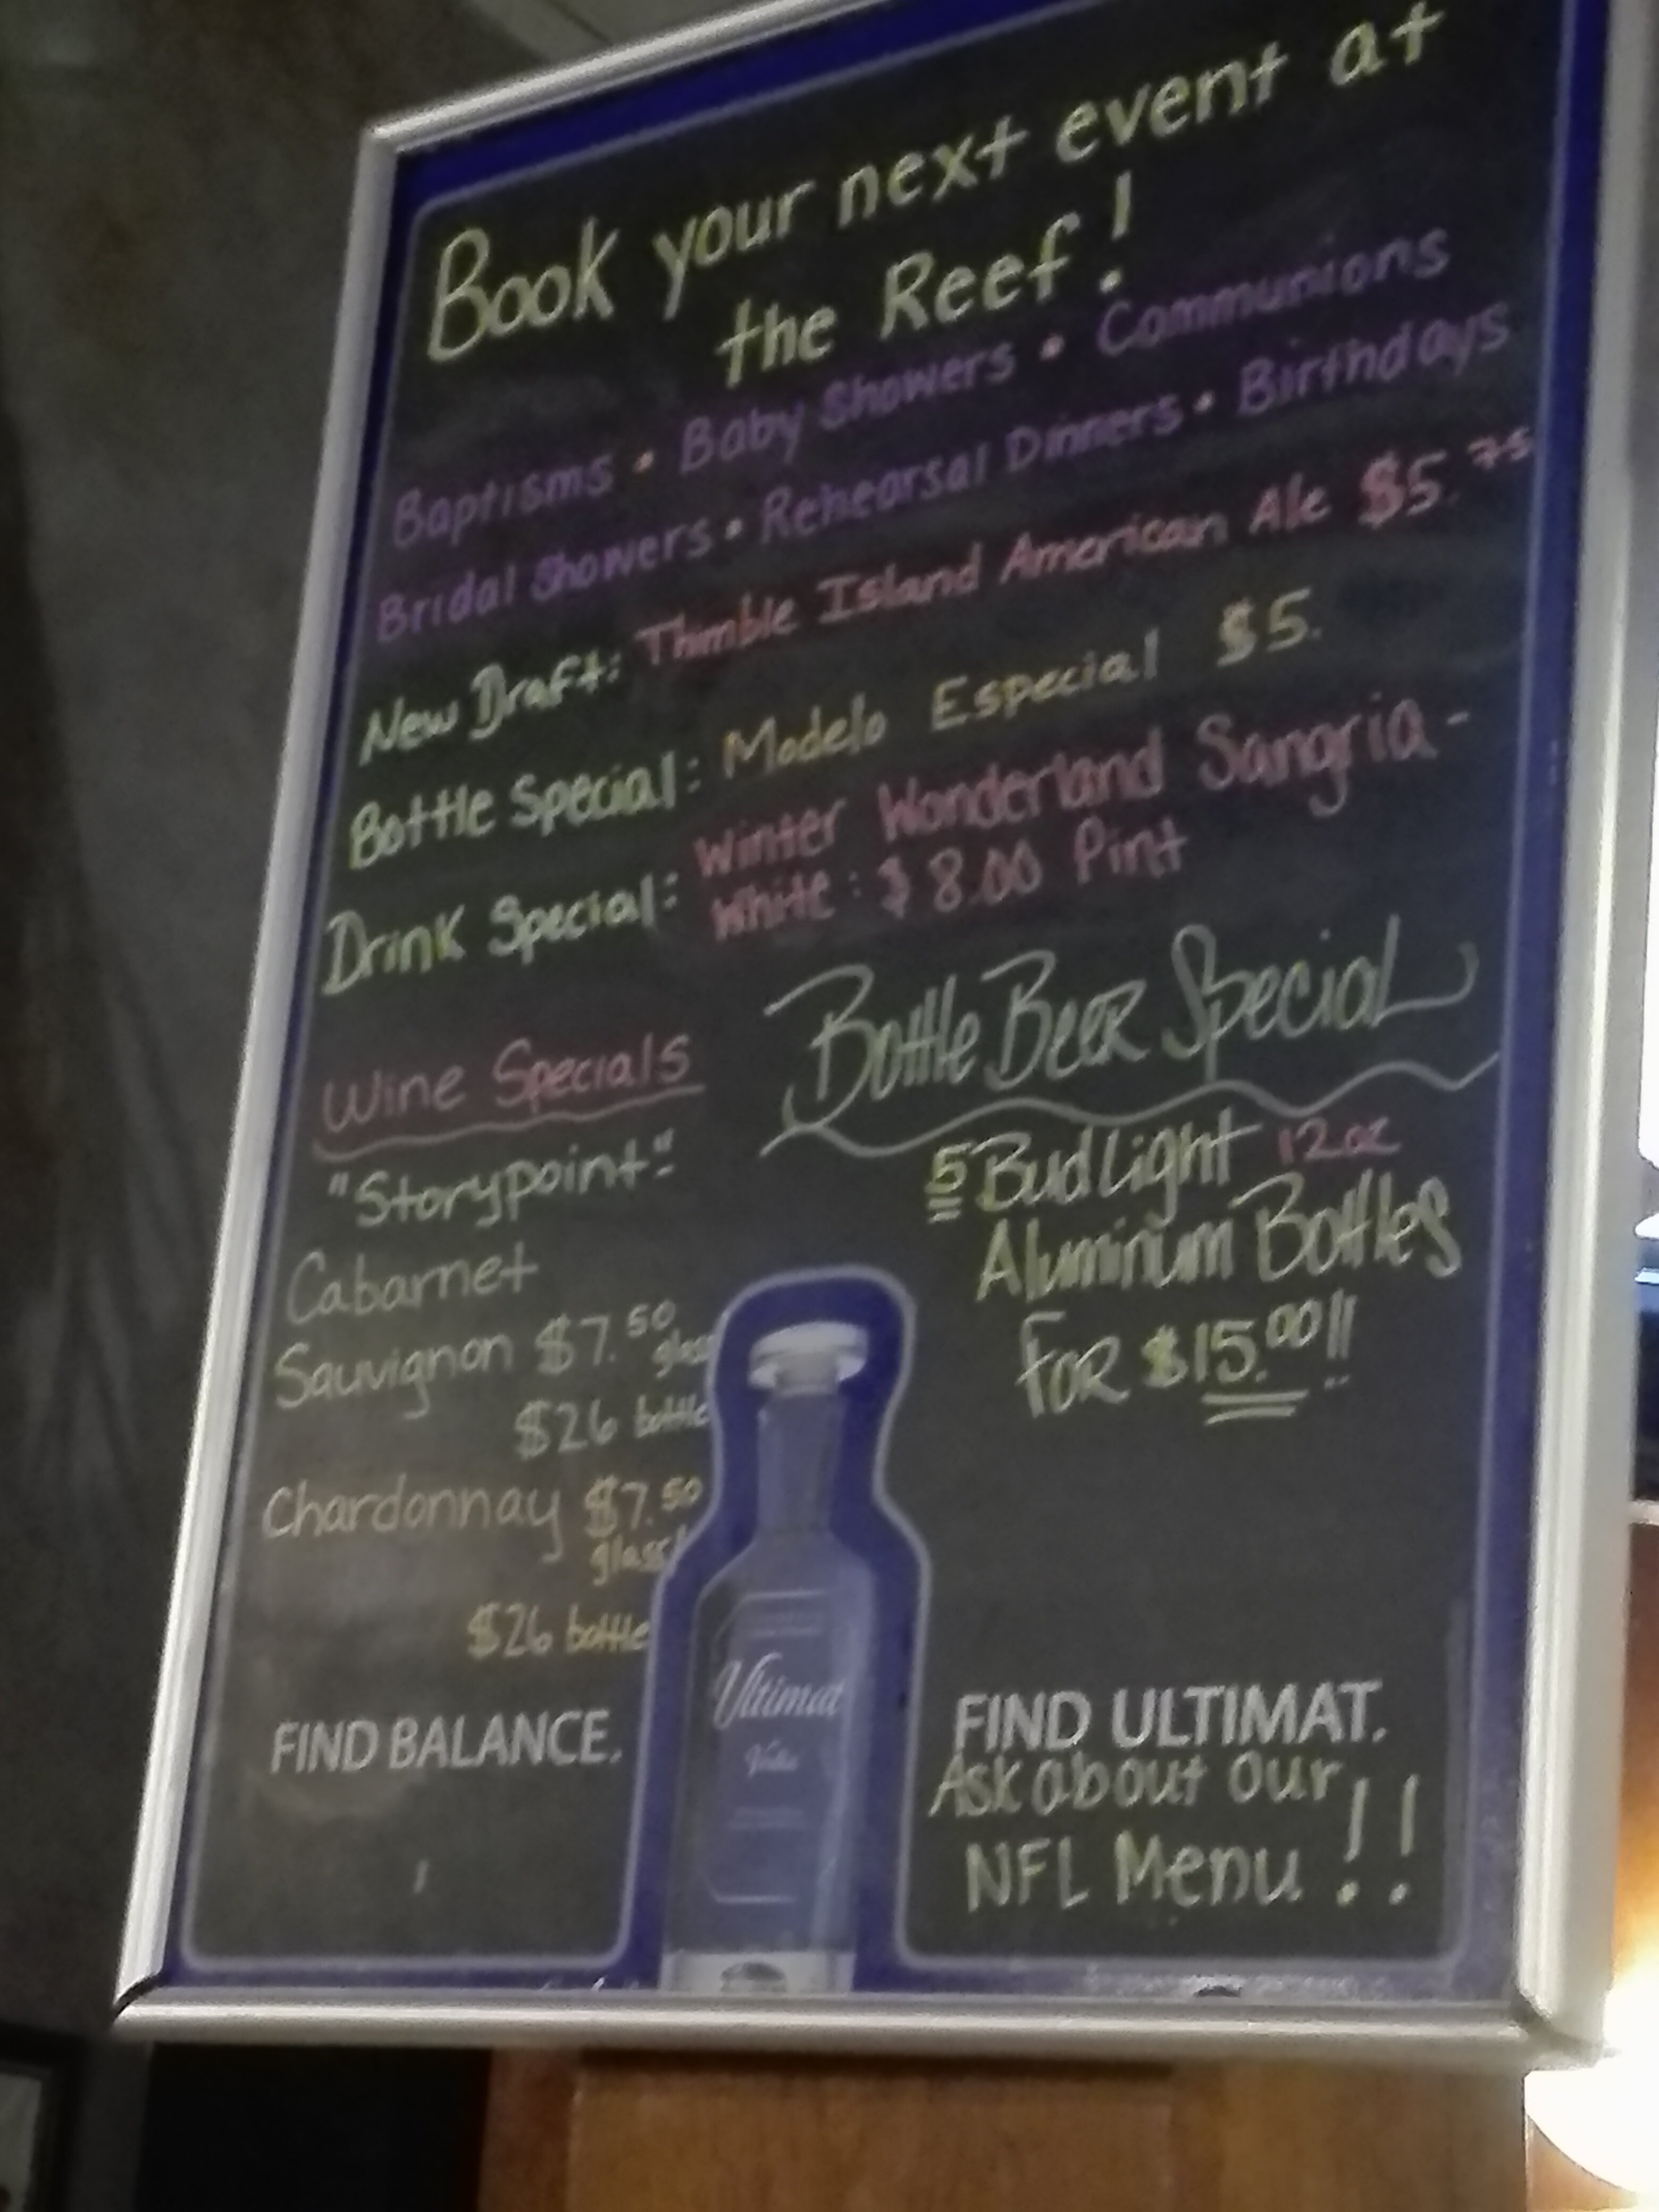 Book your next event at
the Reef!
Baptisms • Baby Showers • Communions
Bridal Showers • Rehearsal Dinners • Birthdays
New Draft: Thimble Island American Ale $5.75
Bottle Special: Modelo Especial $5.
Drink Special: Winter Wonderland Sangria -
White: $8.00 Pint
Wine Specials
"Storypoint":
Cabarnet
Sauvignon $7.50
glass
$26 bottle
Chardonnay $7.50
glass
$26 bottle
Bottle Beer Special
5 Bud Light 12oz
Aluminum Bottles
For $15.00!!
FIND BALANCE.
Ultimat
Vodka
FIND ULTIMAT.
Ask about our
NFL Menu!!